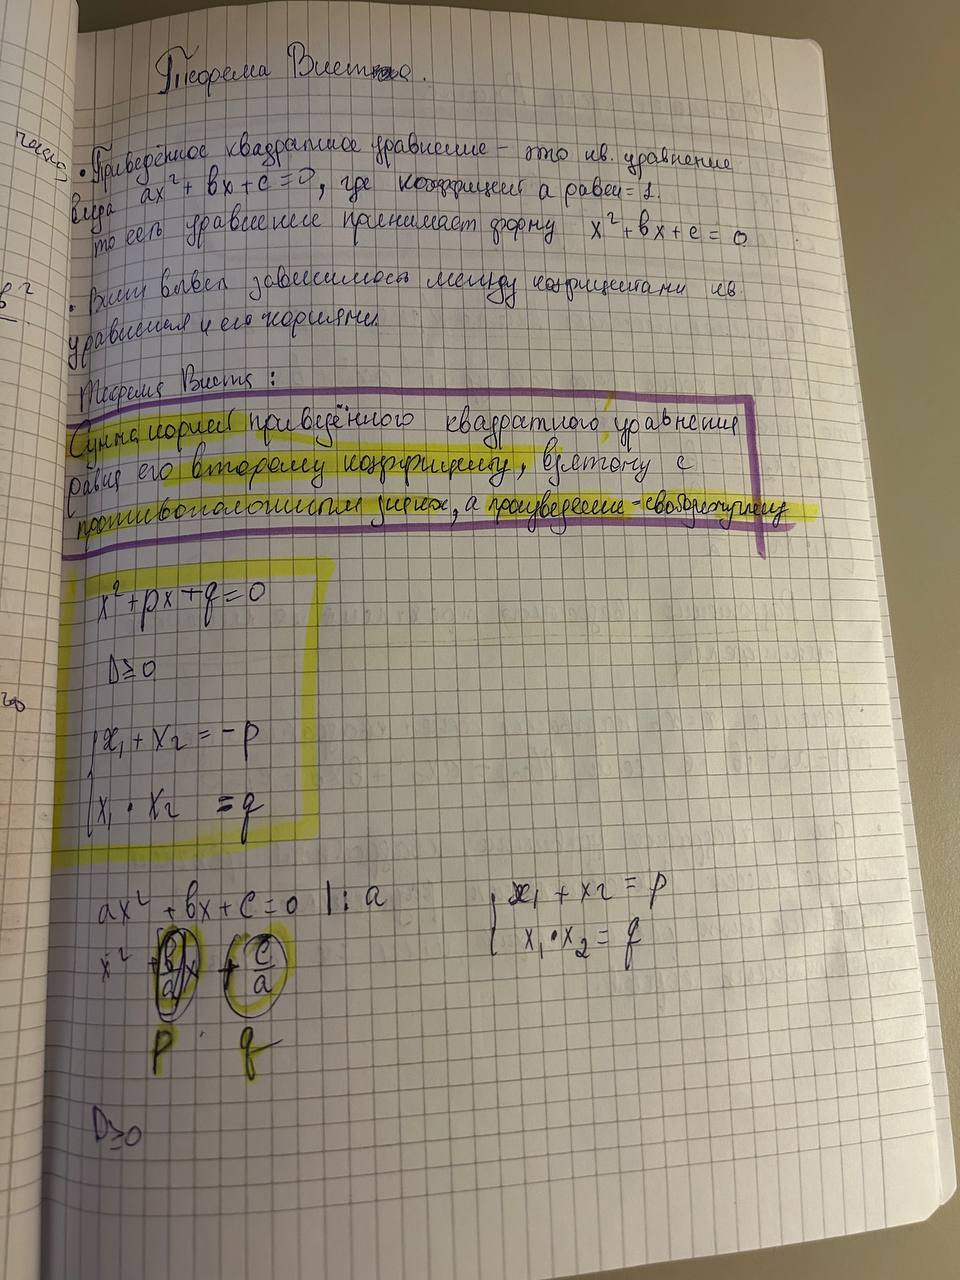 Теорема Виета.
• Приведённое квадратное уравнение – это кв. уравнение
вида ax² + bx + c = 0, где коэффициент a равен = 1.
то есть уравнение принимает форму x² + bx + c = 0
• Виет вывел зависимость между коэффициентами кв
уравнения и его корнями
Теорема Виета :
Сумма корней приведённого квадратного уравнения
равна его второму коэффициенту, взятому с
противоположным знаком, а произведение - свободному члену
x² + px + q = 0
D ≥ 0
x₁ + x₂ = - p
x₁ · x₂ = q
ax² + bx + c = 0 | : a
x² + b/a x + c/a
p q
x₁ + x₂ = p
x₁ · x₂ = q
D ≥ 0